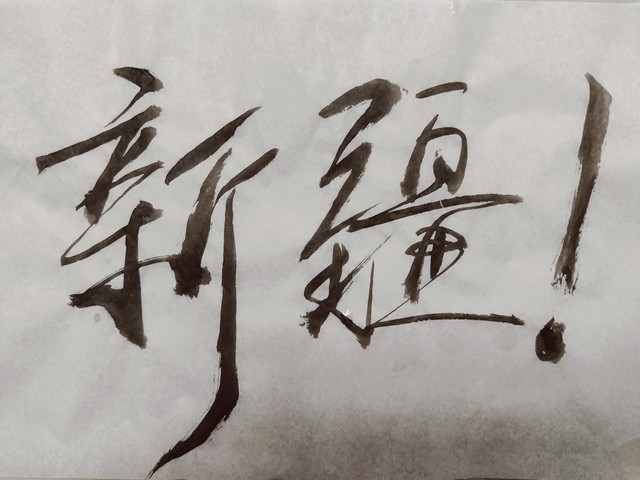 新疆!